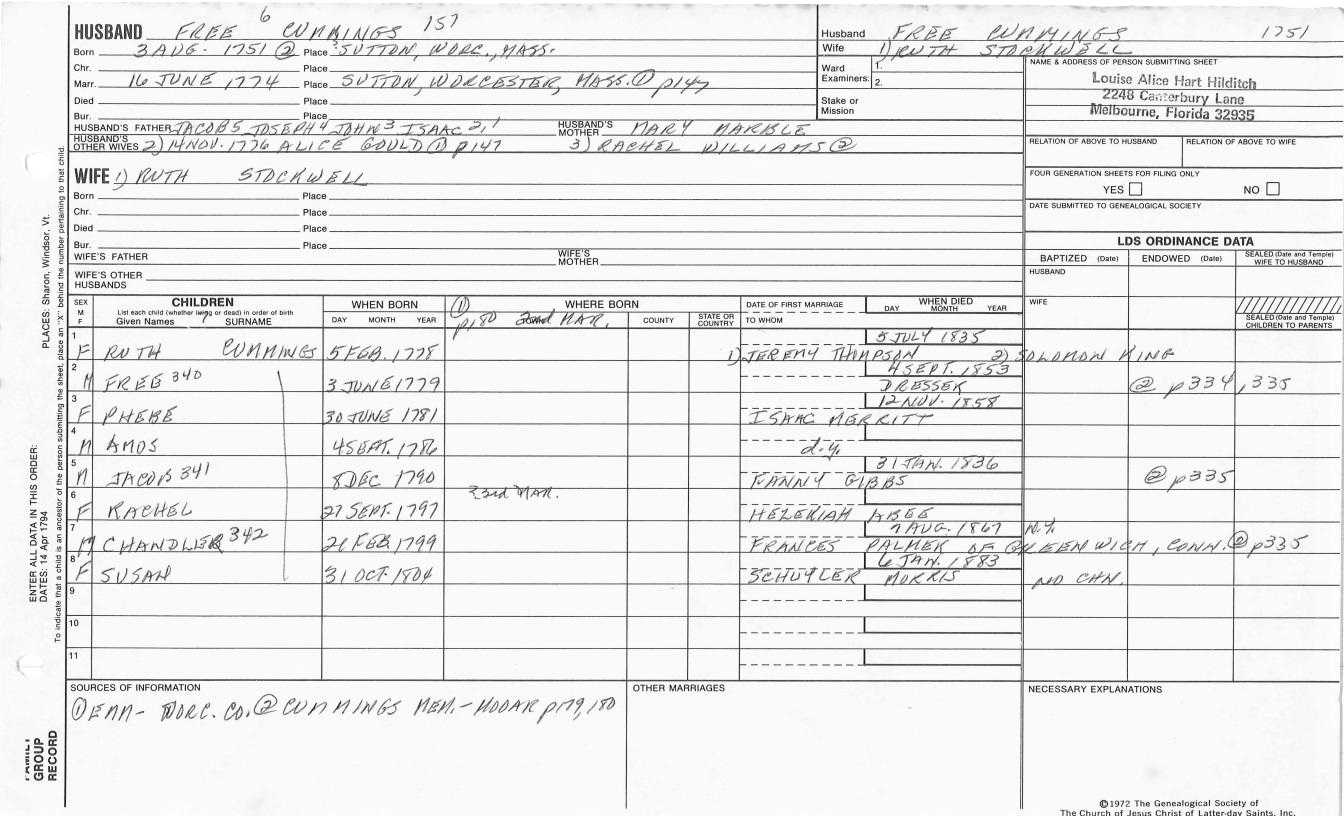 HUSBAND FREE 6 CUMMINGS 157
Born 3 AUG. 1751 ② Place SUTTON, WORC., MASS.
Chr. Place
Marr. 16 JUNE 1774 Place SUTTON, WORCESTER, MASS. ① p147
Died Place
Bur. Place
HUSBAND'S FATHER JACOB 5 JOSEPH 4 JOHN 3 ISAAC 2, 1 HUSBAND'S MOTHER MARY MARBLE
HUSBAND'S OTHER WIVES 2) 14 NOV. 1776 ALICE GOULD ① p147 3) RACHEL WILLIAMS ②
WIFE 1) RUTH STOCKWELL
Born Place
Chr. Place
Died Place
Bur. Place
WIFE'S FATHER WIFE'S MOTHER
WIFE'S OTHER HUSBANDS
Husband FREE CUMMINGS 1751
Wife 1) RUTH STOCKWELL
Ward Examiners: 1. 2.
Stake or Mission
NAME & ADDRESS OF PERSON SUBMITTING SHEET
Louise Alice Hart Hilditch
2248 Canterbury Lane
Melbourne, Florida 32935
RELATION OF ABOVE TO HUSBAND RELATION OF ABOVE TO WIFE
FOUR GENERATION SHEETS FOR FILING ONLY
YES NO
DATE SUBMITTED TO GENEALOGICAL SOCIETY
LDS ORDINANCE DATA
BAPTIZED (Date) ENDOWED (Date) SEALED (Date and Temple) WIFE TO HUSBAND
HUSBAND
WIFE
SEALED (Date and Temple) CHILDREN TO PARENTS
SEX M F
CHILDREN
List each child (whether living or dead) in order of birth
Given Names 7 SURNAME
WHEN BORN
DAY MONTH YEAR
WHERE BORN
① p180 2nd MAR. COUNTY STATE OR COUNTRY
DATE OF FIRST MARRIAGE
TO WHOM
WHEN DIED
DAY MONTH YEAR
1 F RUTH CUMMINGS 5 FEB. 1778 1) JEREMY THOMPSON 2) SOLOMON KING 5 JULY 1835
2 M FREE 340 3 JUNE 1779 DRESSER 4 SEPT. 1853 ② p334, 335
3 F PHEBE 30 JUNE 1781 ISAAC MERRITT 12 NOV. 1858
4 M AMOS 4 SEPT. 1786 d.y.
5 M JACOB 341 8 DEC 1790 FANNY GIBBS 31 JAN. 1836 ② p335
3rd MAR.
6 F RACHEL 27 SEPT. 1797 HEZEKIAH ABEE
7 M CHANDLER 342 21 FEB. 1799 FRANCES PALMER OF GREENWICH, CONN. ② p335 7 AUG. 1867 N.Y.
8 F SUSAN 31 OCT. 1804 SCHUYLER MORRIS 6 JAN. 1883 NO CHN.
9
10
11
SOURCES OF INFORMATION
① EMM- WORC. CO. ② CUMMINGS MEM.- MOOAR p179, 180
OTHER MARRIAGES
NECESSARY EXPLANATIONS
©1972 The Genealogical Society of
The Church of Jesus Christ of Latter-day Saints, Inc.
PLACES: Sharon, Windsor, Vt.
ENTER ALL DATA IN THIS ORDER:
DATES: 14 Apr 1794
To indicate that a child is an ancestor of the person submitting the sheet, place an "X" behind the number pertaining to that child.
FAMILY GROUP RECORD